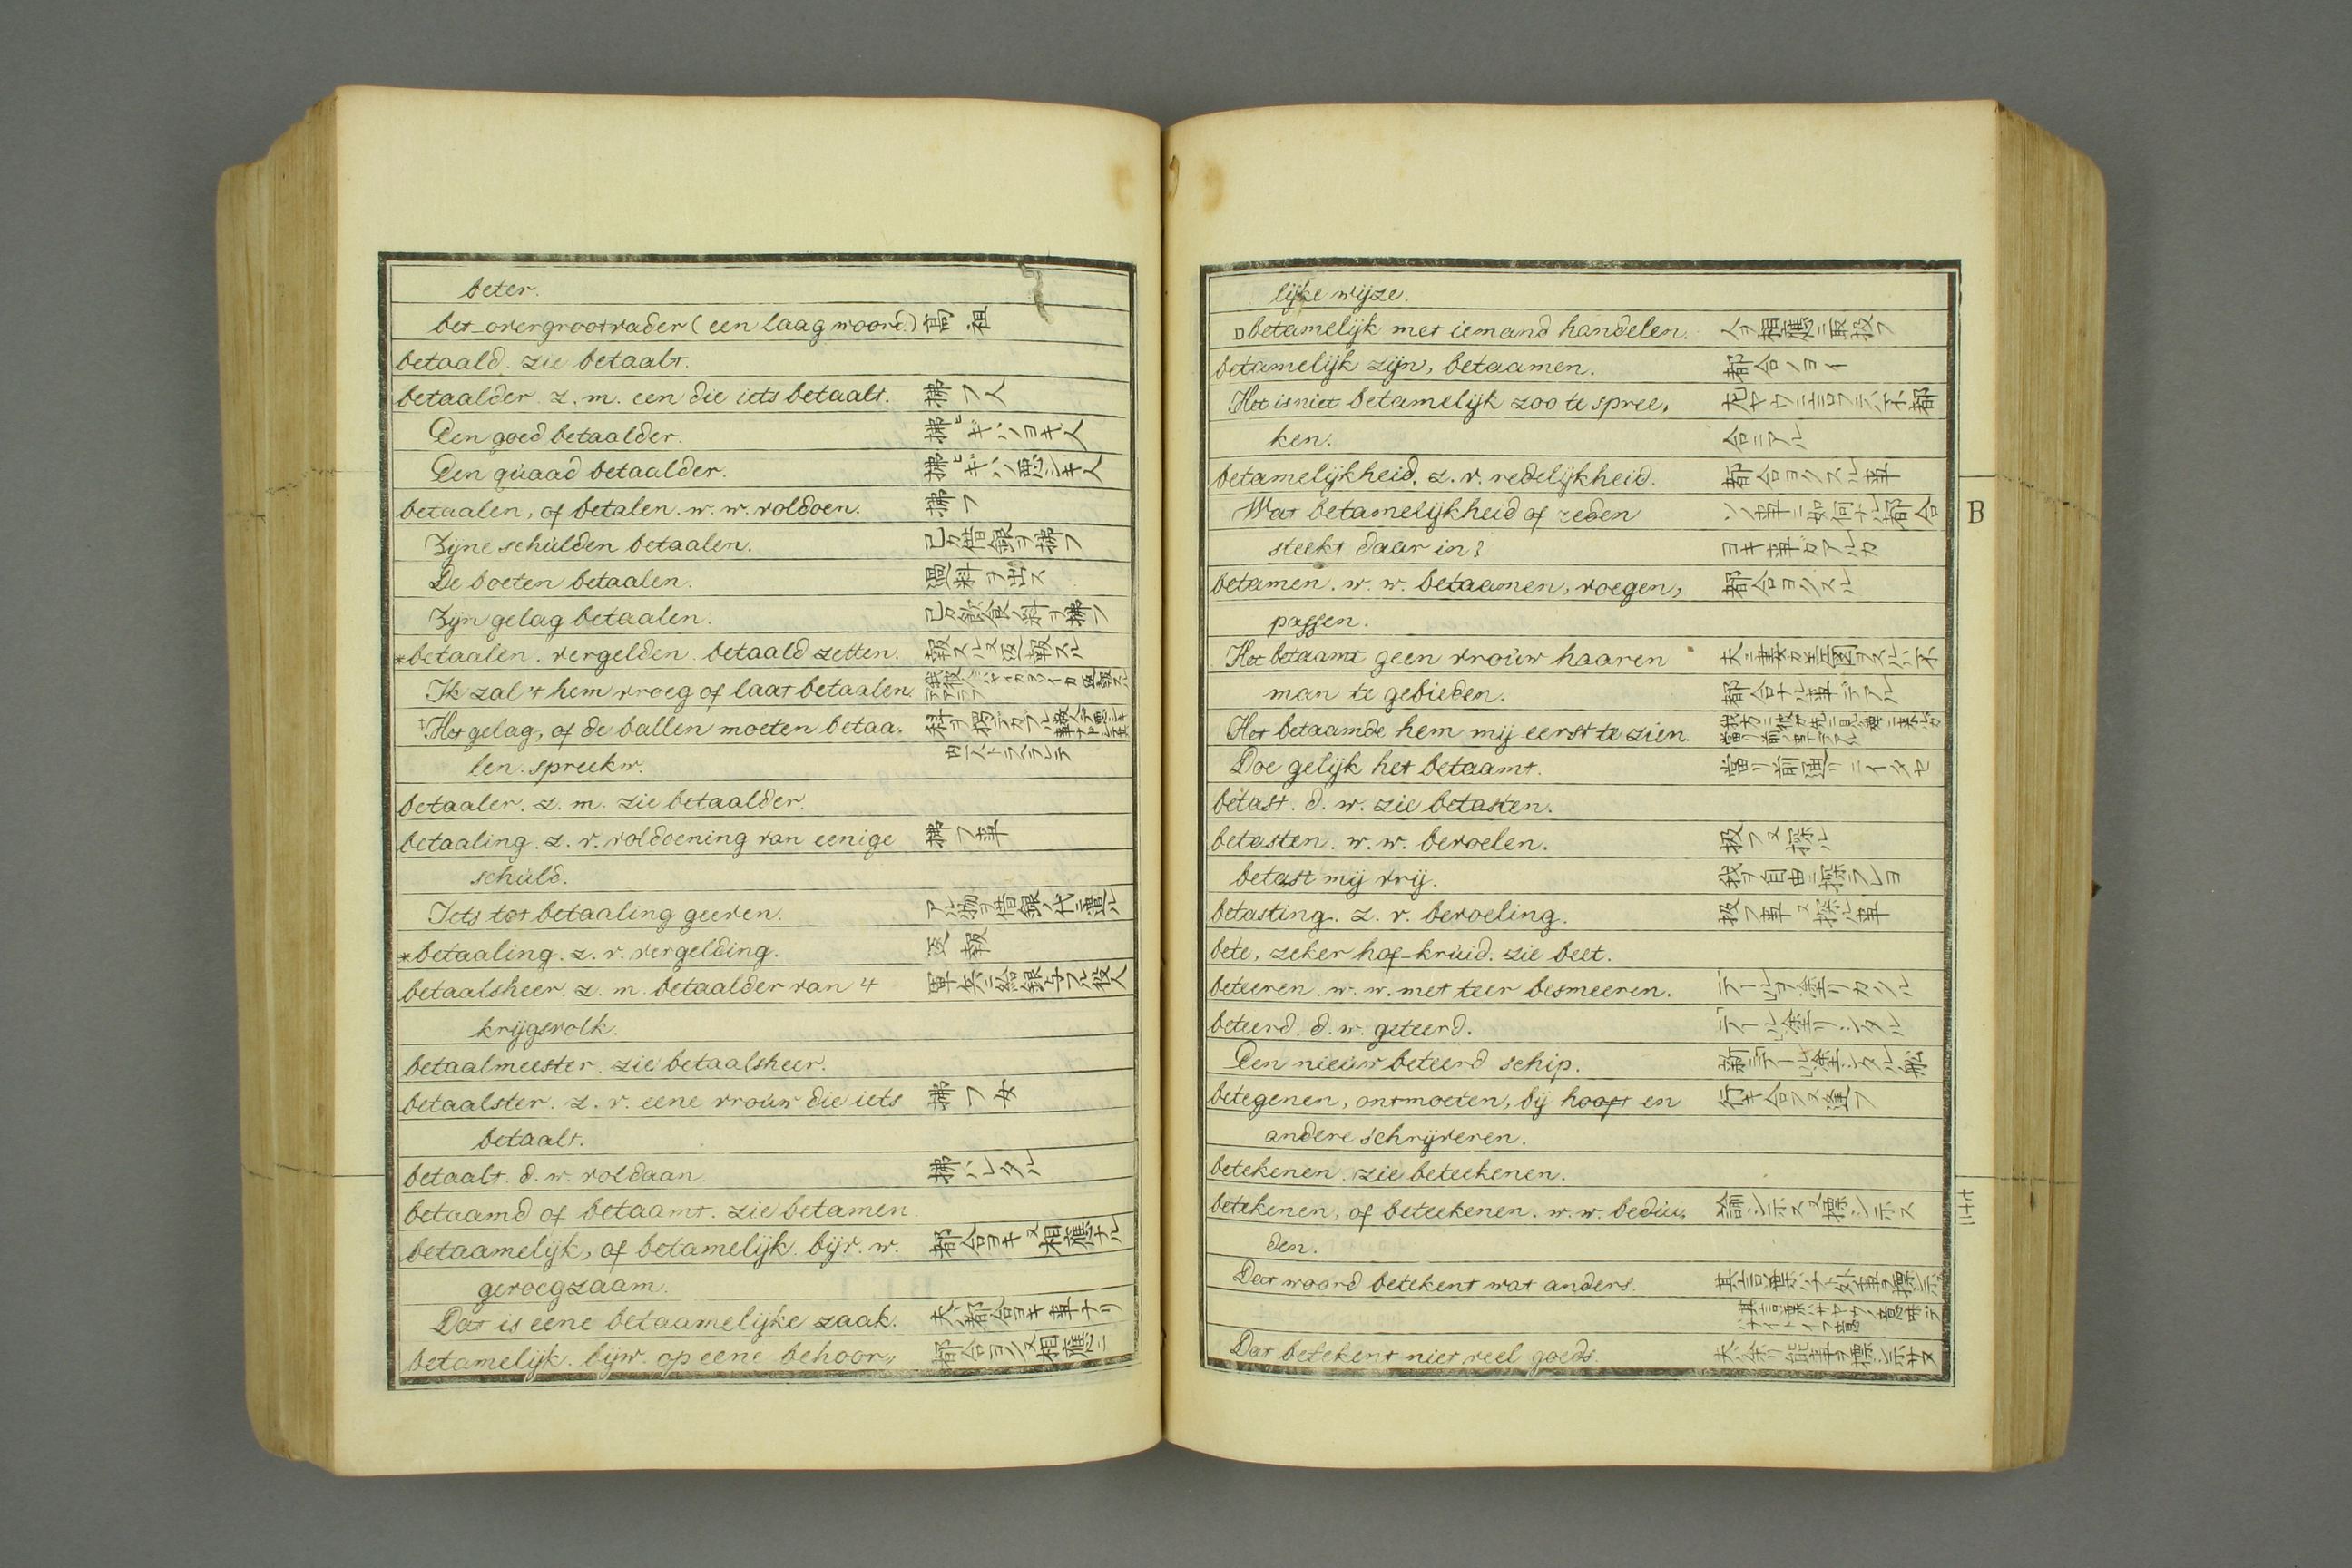 beter.
bet-overgrootvader (een laag woord.) 高祖
betaald. zie betaalt.
betaalder. z. m. een die iets betaalt. 拂フ人
Een goed betaalder. 拂ヒキハノヨキ人
Een quaad betaalder. 拂ヒキハノ悪シキ人
betaalen, of betalen. w. w. voldoen. 拂フ
Zijne schulden betaalen. 己カ借銀ヲ拂フ
De boeten betaalen. 過料ヲ出ス
Zijn gelag betaalen. 己カ飲食ノ料ヲ拂フ
*betaalen. vergelden. betaald zetten. 報スル又返報スル
Ik zal 't hem vroeg of laat betaalen.
Het gelag, of de ballen moeten betaa,
len. spreekw.
betaaler. z. m. zie betaalder.
betaaling. z. v. voldoening van eenige 拂フ事
schuld.
Iets tot betaaling geeven. アル物ヲ借銀ノ代ニ遣ル
*betaaling. z. v. vergelding. 返報
betaalsheer. z. m. betaalder van 't 軍兵ニ給銀ヲ与フル役人
krijgsvolk.
betaalmeester. zie betaalsheer.
betaalster. z. v. eene vrouw die iets 拂フ女
betaalt.
betaalt. d. w. voldaan. 拂ハレタル
betaamd of betaamt. zie betamen.
betaamelijk, of betamelijk. bijv. w. 都合ヨキ又相應ナル
gevoegzaam.
Dat is eene betaamelijke zaak. 夫ハ都合ヨキ事ナリ
betamelijk. bijw. op eene behoor,, 都合ヨク又相應ニ
lijke wijze.
betamelijk met iemand handelen. 人ヲ相應ニ取扱フ
betamelijk zijn, betaamen. 都合ノヨイ
Het is niet betamelijk zoo te spree, 左ヤウニ言フテハ不都
ken. 合ニアル
betamelijkheid. z. v. redelijkheid. 都合ヨクスル事
Wat betamelijkheid of reden ソノ事ニ如何ナル都合
steekt daar in? ヨキ事ガアルカ
betamen. w. w. betaamen, voegen, 都合ヨクスル
passen.
Het betaamt geen vrouw haaren
man te gebieden. 都合ナル事デアル
Het betaamde hem mij eerst te zien.
Doe gelijk het betaamt. 當リ前ノ通リニイタセ
betast. d. w. zie betasten.
betasten. w. w. bevoelen. 扱フ又探ル
betast mij vrij. 我ヲ自由ニ探フレヨ
betasting. z. v. bevoeling. 扱フ事又探ル事
bete, zeker hof-kruid. zie beet.
beteeren. w. w. met teer besmeeren. テールヲ塗リカクル
beteerd. d. w. geteerd. テール塗リシタル
Een nieuw beteerd schip. 新ニテール塗シタル船
betegenen, ontmoeten, bij hooft en 行キ合フ又逢フ
andere schrijveren.
betekenen. zie beteekenen.
betekenen, of beteekenen. w. w. bedui, 諭シホス又標シホス
den.
Dat woord betekent wat anders. 其言葉ハ外ノ事ヲ標シ示ス
Dat betekent niet veel goeds. 夫ハ余リ能事ヲ標シ示サヌ
B